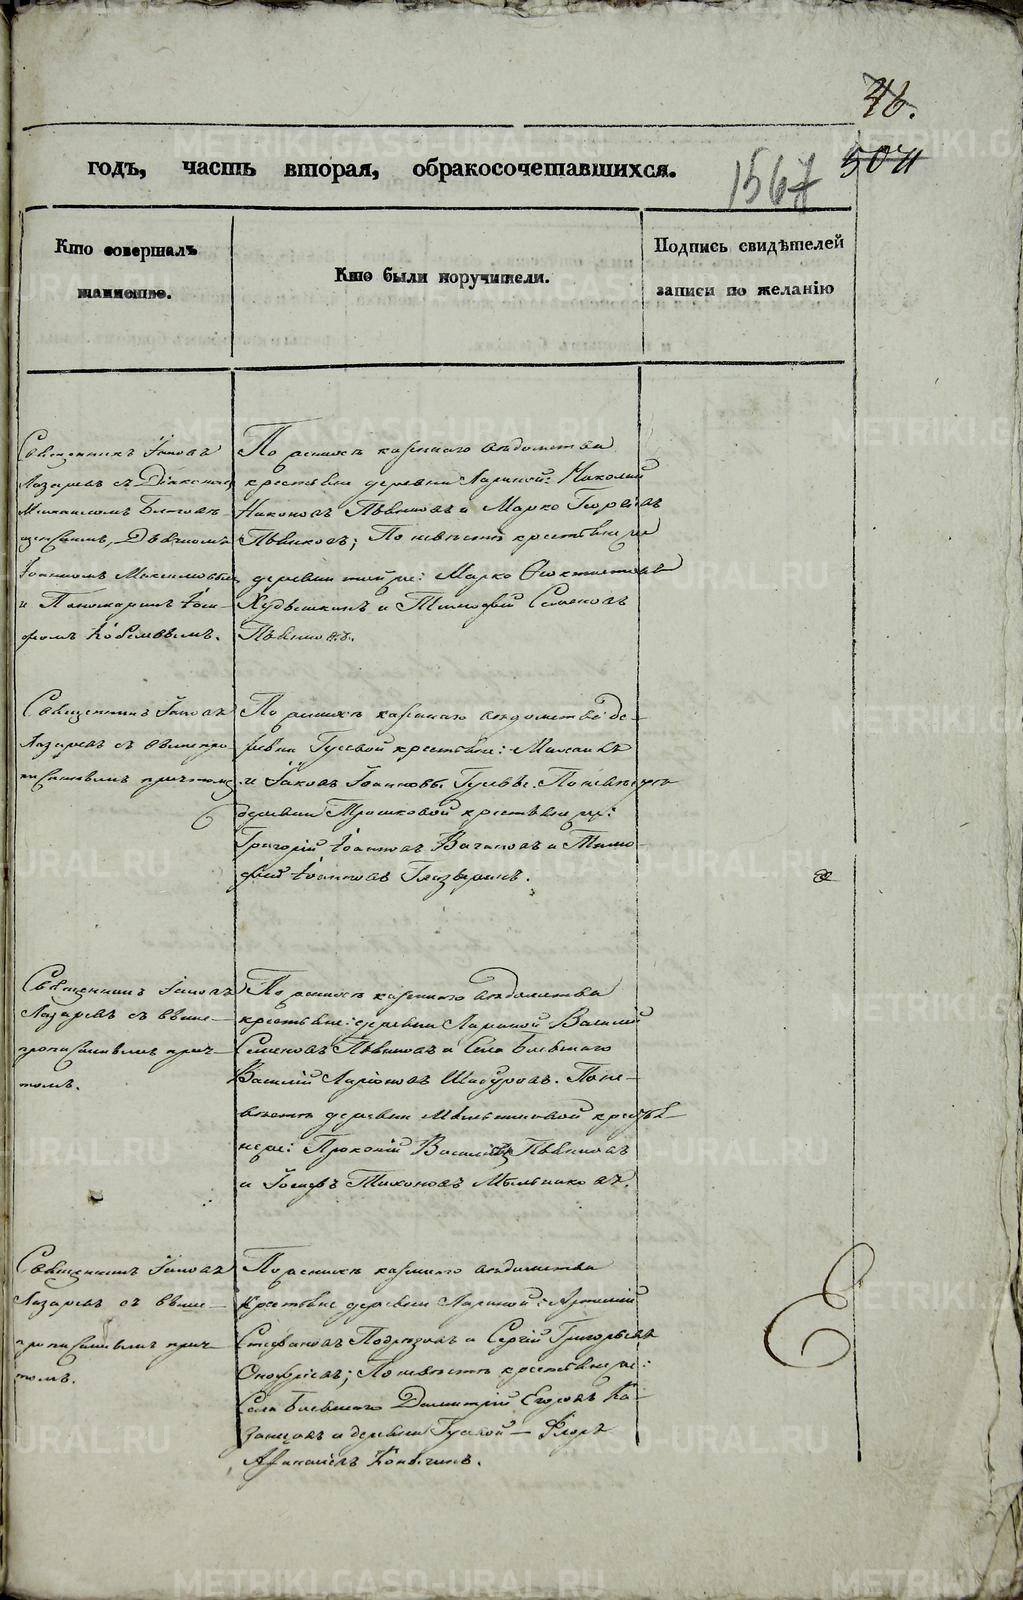 46.
годъ, часть вторая, обракосочетавшихся.
1567
5071
Кто совершалъ
таинство.
Кто были поручители.
Подпись свидѣтелей
записи по желанію
Священникъ Іаковъ
Лазаревъ съ Діакономъ
Михаиломъ Благовѣ-
щенскимъ, Дьячкомъ
Іоанномъ Максимовымъ
и Пономаремъ Іоси-
фомъ
По женихѣ казеннаго вѣдомства
крестьяне деревни Лариной: Николай
Никоновъ Пьянковъ и Марко Георгіевъ
Пьянковъ; По невѣстѣ крестьяне же
деревни той же: Марко Феоктистовъ
Худышкинъ и Тимофей Семеновъ
Пьянковъ.
Священникъ Іаковъ
Лазаревъ съ вышепро-
писаннымъ причтомъ
По женихѣ казеннаго вѣдомства де-
ревни Гусевой крестьяне: Михаилъ
и Іаковъ Іоанновы Гусевы. По невѣстѣ
деревни Трошковой крестьяне же:
Григорій Іоанновъ Вагановъ и Тимо-
фей Іоанновъ Глазыринъ.
Священникъ Іаковъ
Лазаревъ съ выше-
прописаннымъ прич-
томъ.
По женихѣ казеннаго вѣдомства
крестьяне: деревни Лариной Василій
Семеновъ Пьянковъ и Села Баевскаго
Василій Ларіоновъ Шабуровъ. По не-
вѣстѣ деревни Мельниковой крестья-
не же: Прокопій Васильевъ Пьянковъ
и Іосифъ Тихоновъ Мельниковъ.
Священникъ Іаковъ
Лазаревъ съ выше-
прописаннымъ прич-
томъ.
По женихѣ казеннаго вѣдомства
крестьяне деревни Лариной: Артемій
Стефановъ и Сергій Григорьевъ
Онофріевъ; По невѣстѣ крестьяне же:
Села Баевскаго Димитрій Егоровъ Ка-
занцовъ и деревни Гусевой — Флоръ
Афанасьевъ Коныгинъ.